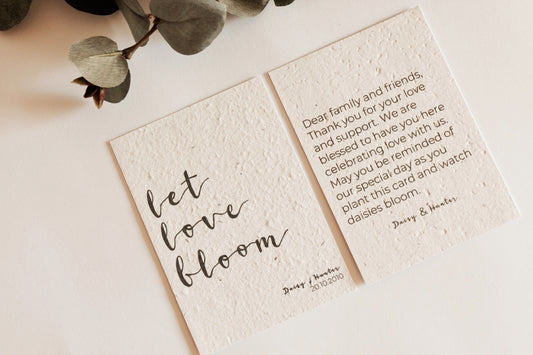 let
love
bloom
Daisy & Hunter
20.10.2010
Dear family and friends,
Thank you for your love
and support. We are
blessed to have you here
celebrating love with us.
May you be reminded of
our special day as you
plant this card and watch
daisies bloom.
Daisy & Hunter